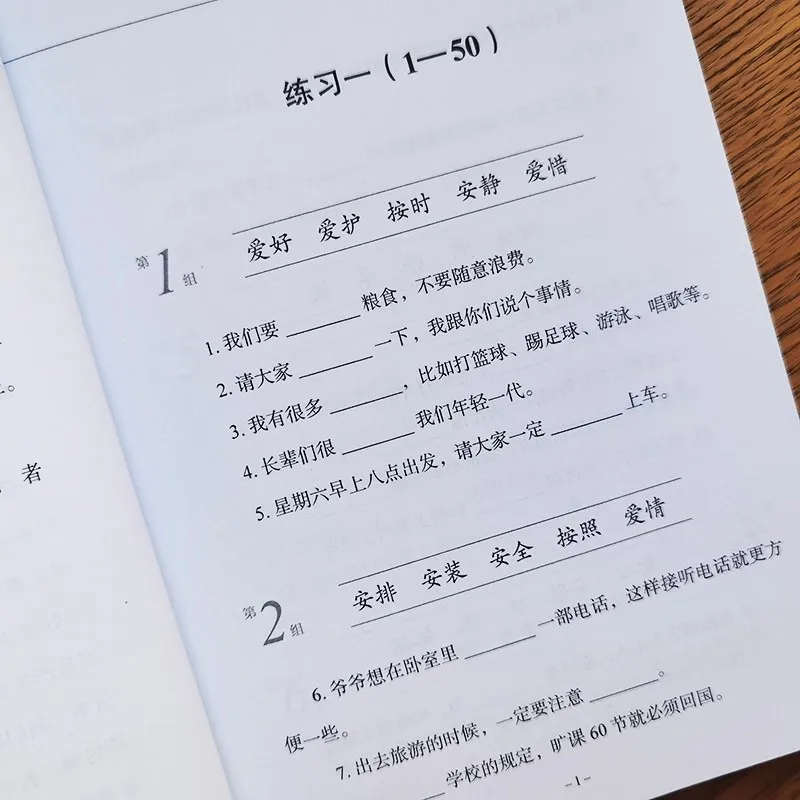 练习一（1—50）
爱好 爱护 按时 安静 爱惜
第1组
1. 我们要 ______ 粮食，不要随意浪费。
2. 请大家 ______ 一下，我跟你们说个事情。
3. 我有很多 ______ ，比如打篮球、踢足球、游泳、唱歌等。
4. 长辈们很 ______ 我们年轻一代。
5. 星期六早上八点出发，请大家一定 ______ 上车。
安排 安装 安全 按照 爱情
第2组
6. 爷爷想在卧室里 ______ 一部电话，这样接听电话就更方
便一些。
7. 出去旅游的时候，一定要注意 ______ 。
______ 学校的规定，旷课 60 节就必须回国。
-1-
者